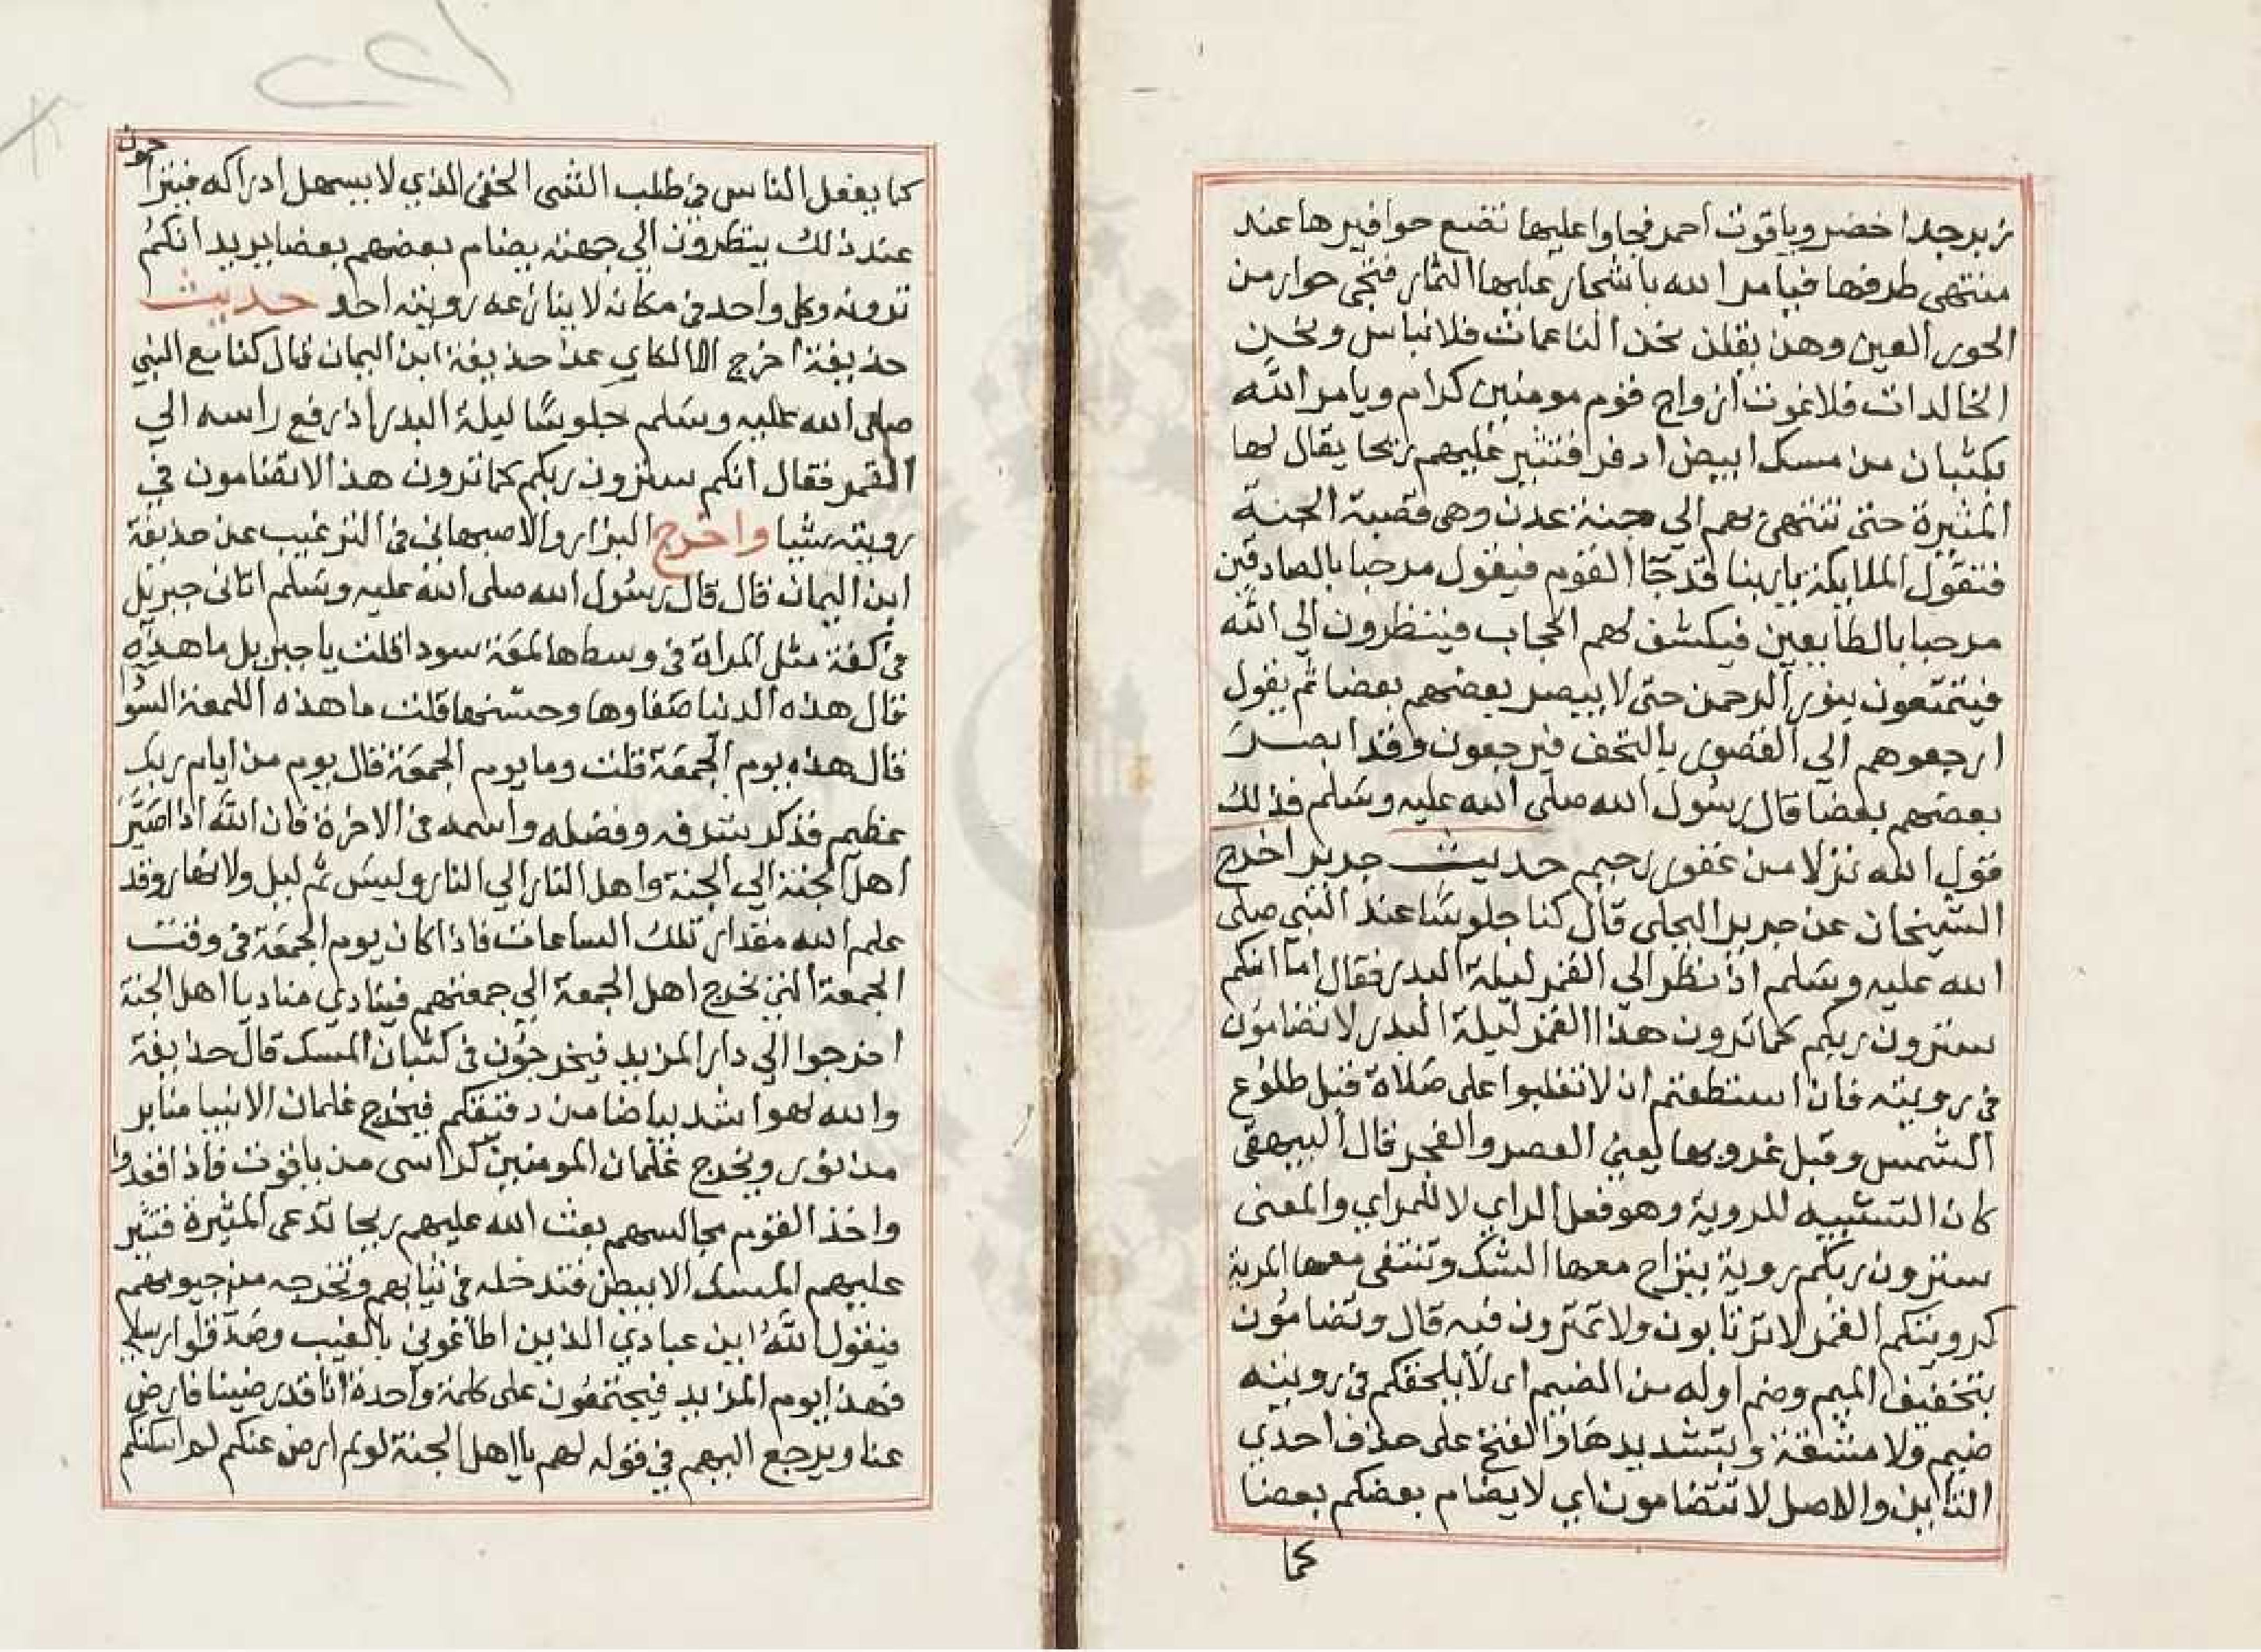 زبرجد اخضر وياقوت احمر فجاوا عليها تضع حوافيرها عند
منتهى طرفها فيامر الله باشجار عليها الثمار فتجى حوار من
الحور العين وهن يقلن نحن الناعمات فلا نباس ونحن
الخالدات فلا نموت ازواج قوم مومنين كرام ويامر الله
بكثبان من مسك ابيض ادفر فتثير عليهم ريحا يقال لها
المثيرة حتى تنتهى بهم الى جنة عدن وهى قصبة الجنة
فتقول الملايكة ياربنا قد جآ القوم فيقول مرحبا بالصادقين
مرحبا بالطايعين فيكشف لهم الحجاب فينظرون الي الله
فيتمتعون بنور الرحمن حتى لا يبصر بعضهم بعضا ثم يقول
ارجعوهم الي القصور بالتحف فيرجعون وقد ابصر
بعضهم بعضا قال رسول الله صلى الله عليه وسلم فذلك
قول الله نزلا من غفور رحيم حديث جرير اخرج
الشيخان عن جرير البجلى قال كنا جلوسًا عند النبى صلى
الله عليه وسلم اذ نظر الي القمر ليلة البدر فقال اما انكم
سترون ربكم كما ترون هذا القمر ليلة البدر لا تضامون
فى رويته فان استطعتم ان لا تغلبوا على صلاة قبل طلوع
الشمس وقبل غروبها يعني العصر والفجر قال البيهقى
كان التشبيه للروية وهو فعل الراي لا للمراي والمعنى
سترون ربكم روية ينزاح معها الشك وتنتفى معها المرية
كرويتكم القمر لا ترتابون ولا تمترون فيه قال وتضامون
بتخفيف الميم وضم اوله من الضيم اى لا يلحقكم فى رويته
ضيم ولا مشقة وبتشديدها والفتح على حذف احدي
التاين والاصل لا تتضامون اي لا يضام بعضكم بعضا
كما
كما يفعل الناس في طلب الشى الخفى الذي لا يسهل ادراكه فيتزا
حون
عند ذلك ينظرون الي جهته يضام بعضهم بعضا يريد انكم
ترونه وكل واحد في مكانه لا ينازعه رويته احد حديث
حذيفة اخرج اللالكاي عن حذيفة ابن اليمان قال كنا مع النبي
صلى الله عليه وسلم جلوسًا ليلة البدر اذ رفع راسه الي
القمر فقال انكم سترون ربكم كما ترون هذا لا تضامون في
رويته شيا واخرج البزار والاصبهانى فى الترغيب عن حذيفة
ابن اليمان قال قال رسول الله صلى الله عليه وسلم اتانى جبريل
فى كفه مثل المراة فى وسطها لمعة سودا قلت يا جبريل ما هذه
قال هذه الدنيا صفاوها وحسنها قلت ما هذه اللمعة السو
قال هذه يوم الجمعة قلت وما يوم الجمعة قال يوم من ايام ربك
عظيم فذكر شرفه وفضله واسمه فى الاخرة فان الله اذا صيّر
اهل الجنة الي الجنة واهل النار الي النار وليس ثم ليل ولا نهار وقد
علم الله مقدار تلك الساعات فاذا كان يوم الجمعة فى وقت
الجمعة التي تخرج اهل الجمعة الي جمعتهم فينادي مناد يا اهل الجنة
اخرجوا الي دار المزيد فيخرجون فى كثبان المسك قال حذيفة
والله لهو اشد بياضا من دقيقكم فيخرج غلمان الانبيا منابر
من نور ويخرج غلمان المومنين كراسى من ياقوت فاذا قعدوا
واخذ القوم مجالسهم بعث الله عليهم ريحا تدعى المثيرة فتثير
عليهم المسك الابيض فتدخله فى ثيابهم وتخرجه من جيوبهم
فيقول الله اين عبادي الذين اطاعوني بالغيب وصدقوا رسلي
فهذا يوم المزيد فيجتمعون على كلمة واحدة انا قد رضينا فارض
عنا ويرجع اليهم في قوله لهم يا اهل الجنة لو لم ارض عنكم لم اسكنكم